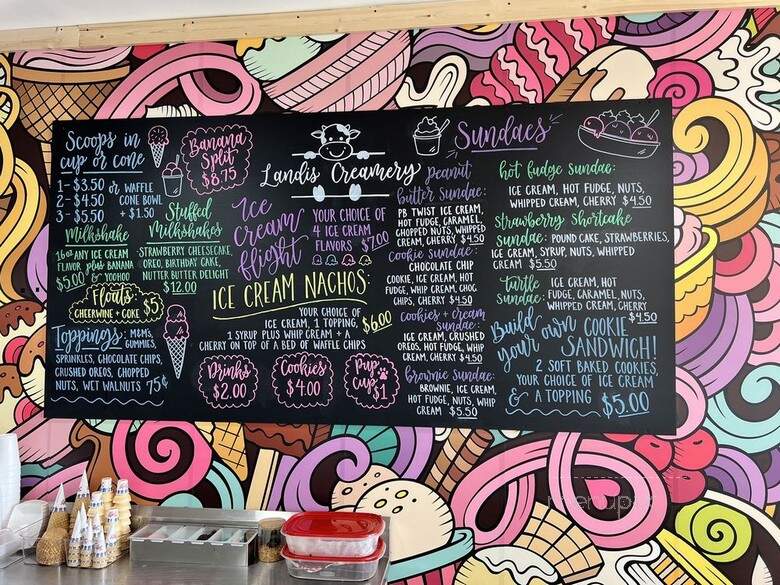 Scoops in
cup or cone
1 - $3.50 or WAFFLE
2 - $4.50 CONE BOWL
3 - $5.50 + $1.50
Banana
Split
$8.75
Milkshake
16oz ANY ICE CREAM
FLAVOR plus BANANA
$5.00 & YOOHOO
Stuffed
Milkshakes
STRAWBERRY CHEESECAKE,
OREO, BIRTHDAY CAKE,
NUTTER BUTTER DELIGHT
$12.00
Floats
CHEERWINE + COKE $5
Toppings: M&M'S,
GUMMIES,
SPRINKLES, CHOCOLATE CHIPS,
CRUSHED OREOS, CHOPPED
NUTS, WET WALNUTS 75¢
Landis Creamery
Ice
cream
flight
YOUR CHOICE OF
4 ICE CREAM
FLAVORS $7.00
ICE CREAM NACHOS:
YOUR CHOICE OF
ICE CREAM, 1 TOPPING, $6.00
1 SYRUP PLUS WHIP CREAM + A
CHERRY ON TOP OF A BED OF WAFFLE CHIPS
Drinks
$2.00
Cookies
$4.00
Pup
cup
$1
Sundaes
peanut
butter sundae:
PB TWIST ICE CREAM,
HOT FUDGE, CARAMEL,
CHOPPED NUTS, WHIPPED
CREAM, CHERRY $4.50
cookie sundae:
CHOCOLATE CHIP
COOKIE, ICE CREAM, HOT
FUDGE, WHIP CREAM, CHOC
CHIPS, CHERRY $4.50
cookies + cream
sundae:
ICE CREAM, CRUSHED
OREOS, HOT FUDGE, WHIP
CREAM, CHERRY $4.50
brownie sundae:
BROWNIE, ICE CREAM,
HOT FUDGE, NUTS, WHIP
CREAM $5.50
hot fudge sundae:
ICE CREAM, HOT FUDGE, NUTS,
WHIPPED CREAM, CHERRY $4.50
Strawberry Shortcake
sundae: POUND CAKE, STRAWBERRIES,
ICE CREAM, SYRUP, NUTS, WHIPPED
CREAM $5.50
turtle
sundae:
ICE CREAM, HOT
FUDGE, CARAMEL, NUTS,
WHIPPED CREAM, CHERRY
$4.50
Build
your own COOKIE
SANDWICH!
2 SOFT BAKED COOKIES,
YOUR CHOICE OF ICE CREAM
& A TOPPING $5.00